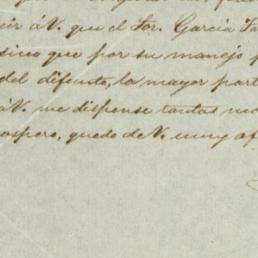 cir á V. que el Sor. Garcia
sico que por su manejo
del difunto, la mayor part
á V. me dispense tantas
espero, quedo de V. muy af